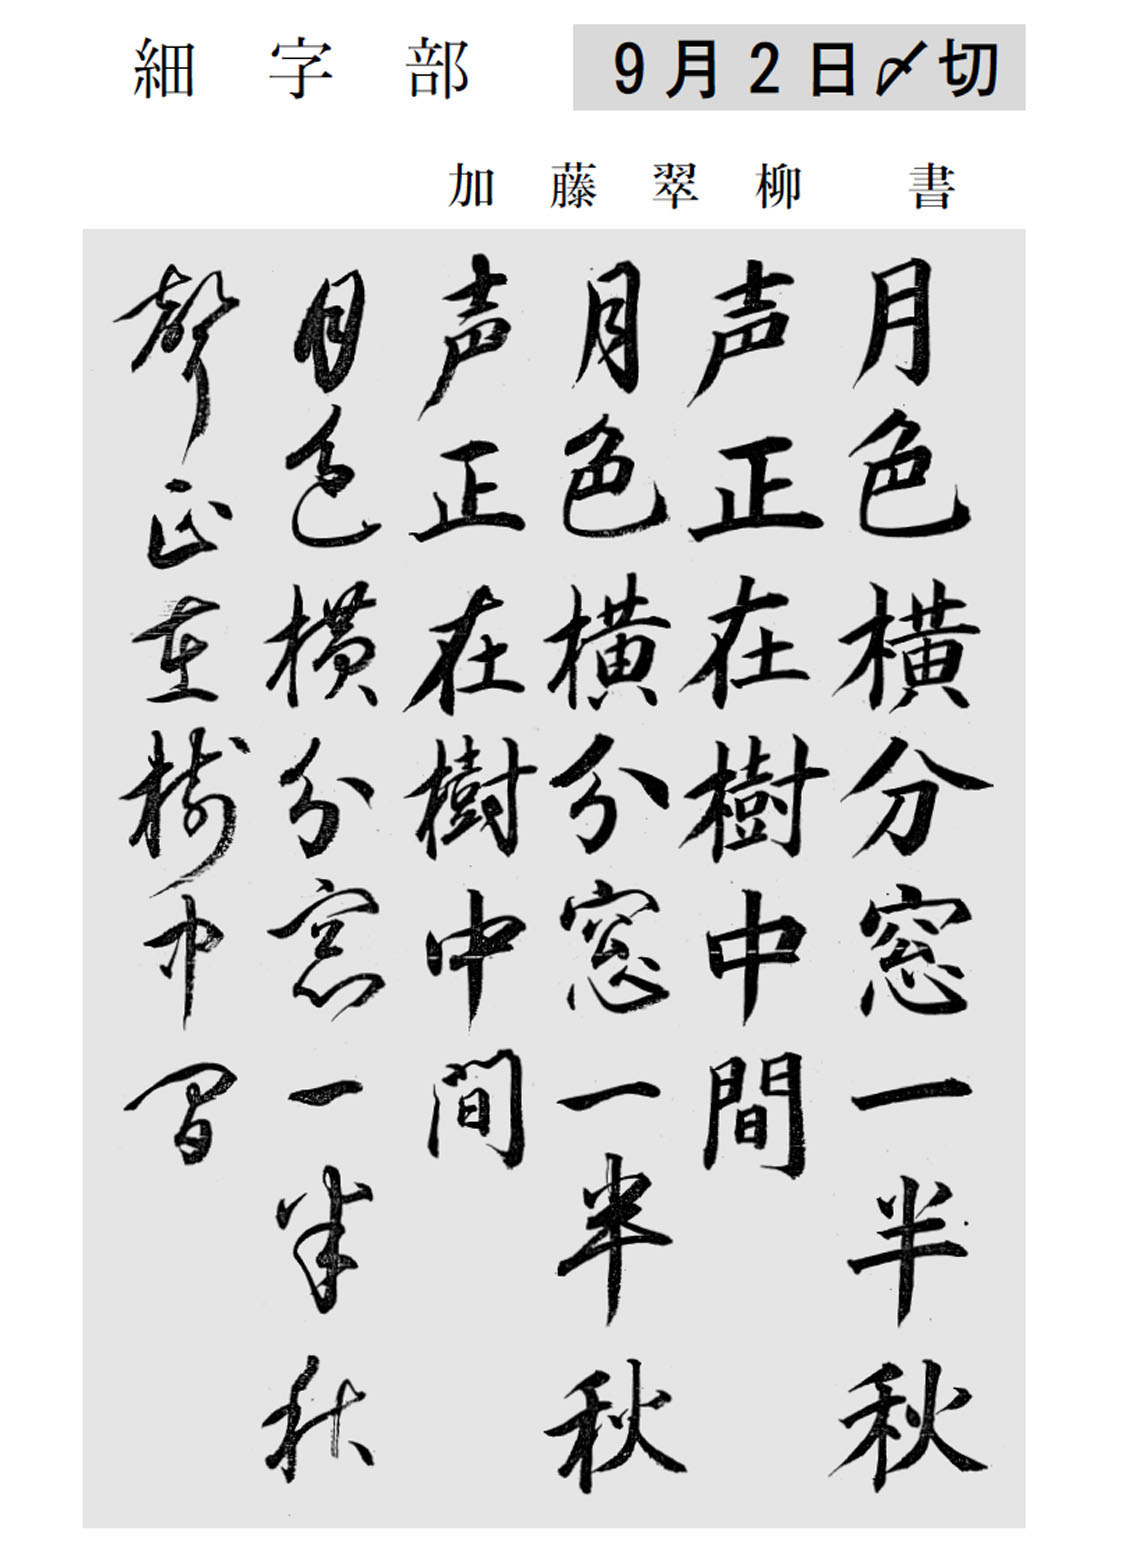 細字部
9月2日〆切
加藤翠柳 書
月色横分窓一半秋
声正在樹中間
月色横分窓一半秋
声正在樹中間
月色横分窓一半秋
聲正在樹中間